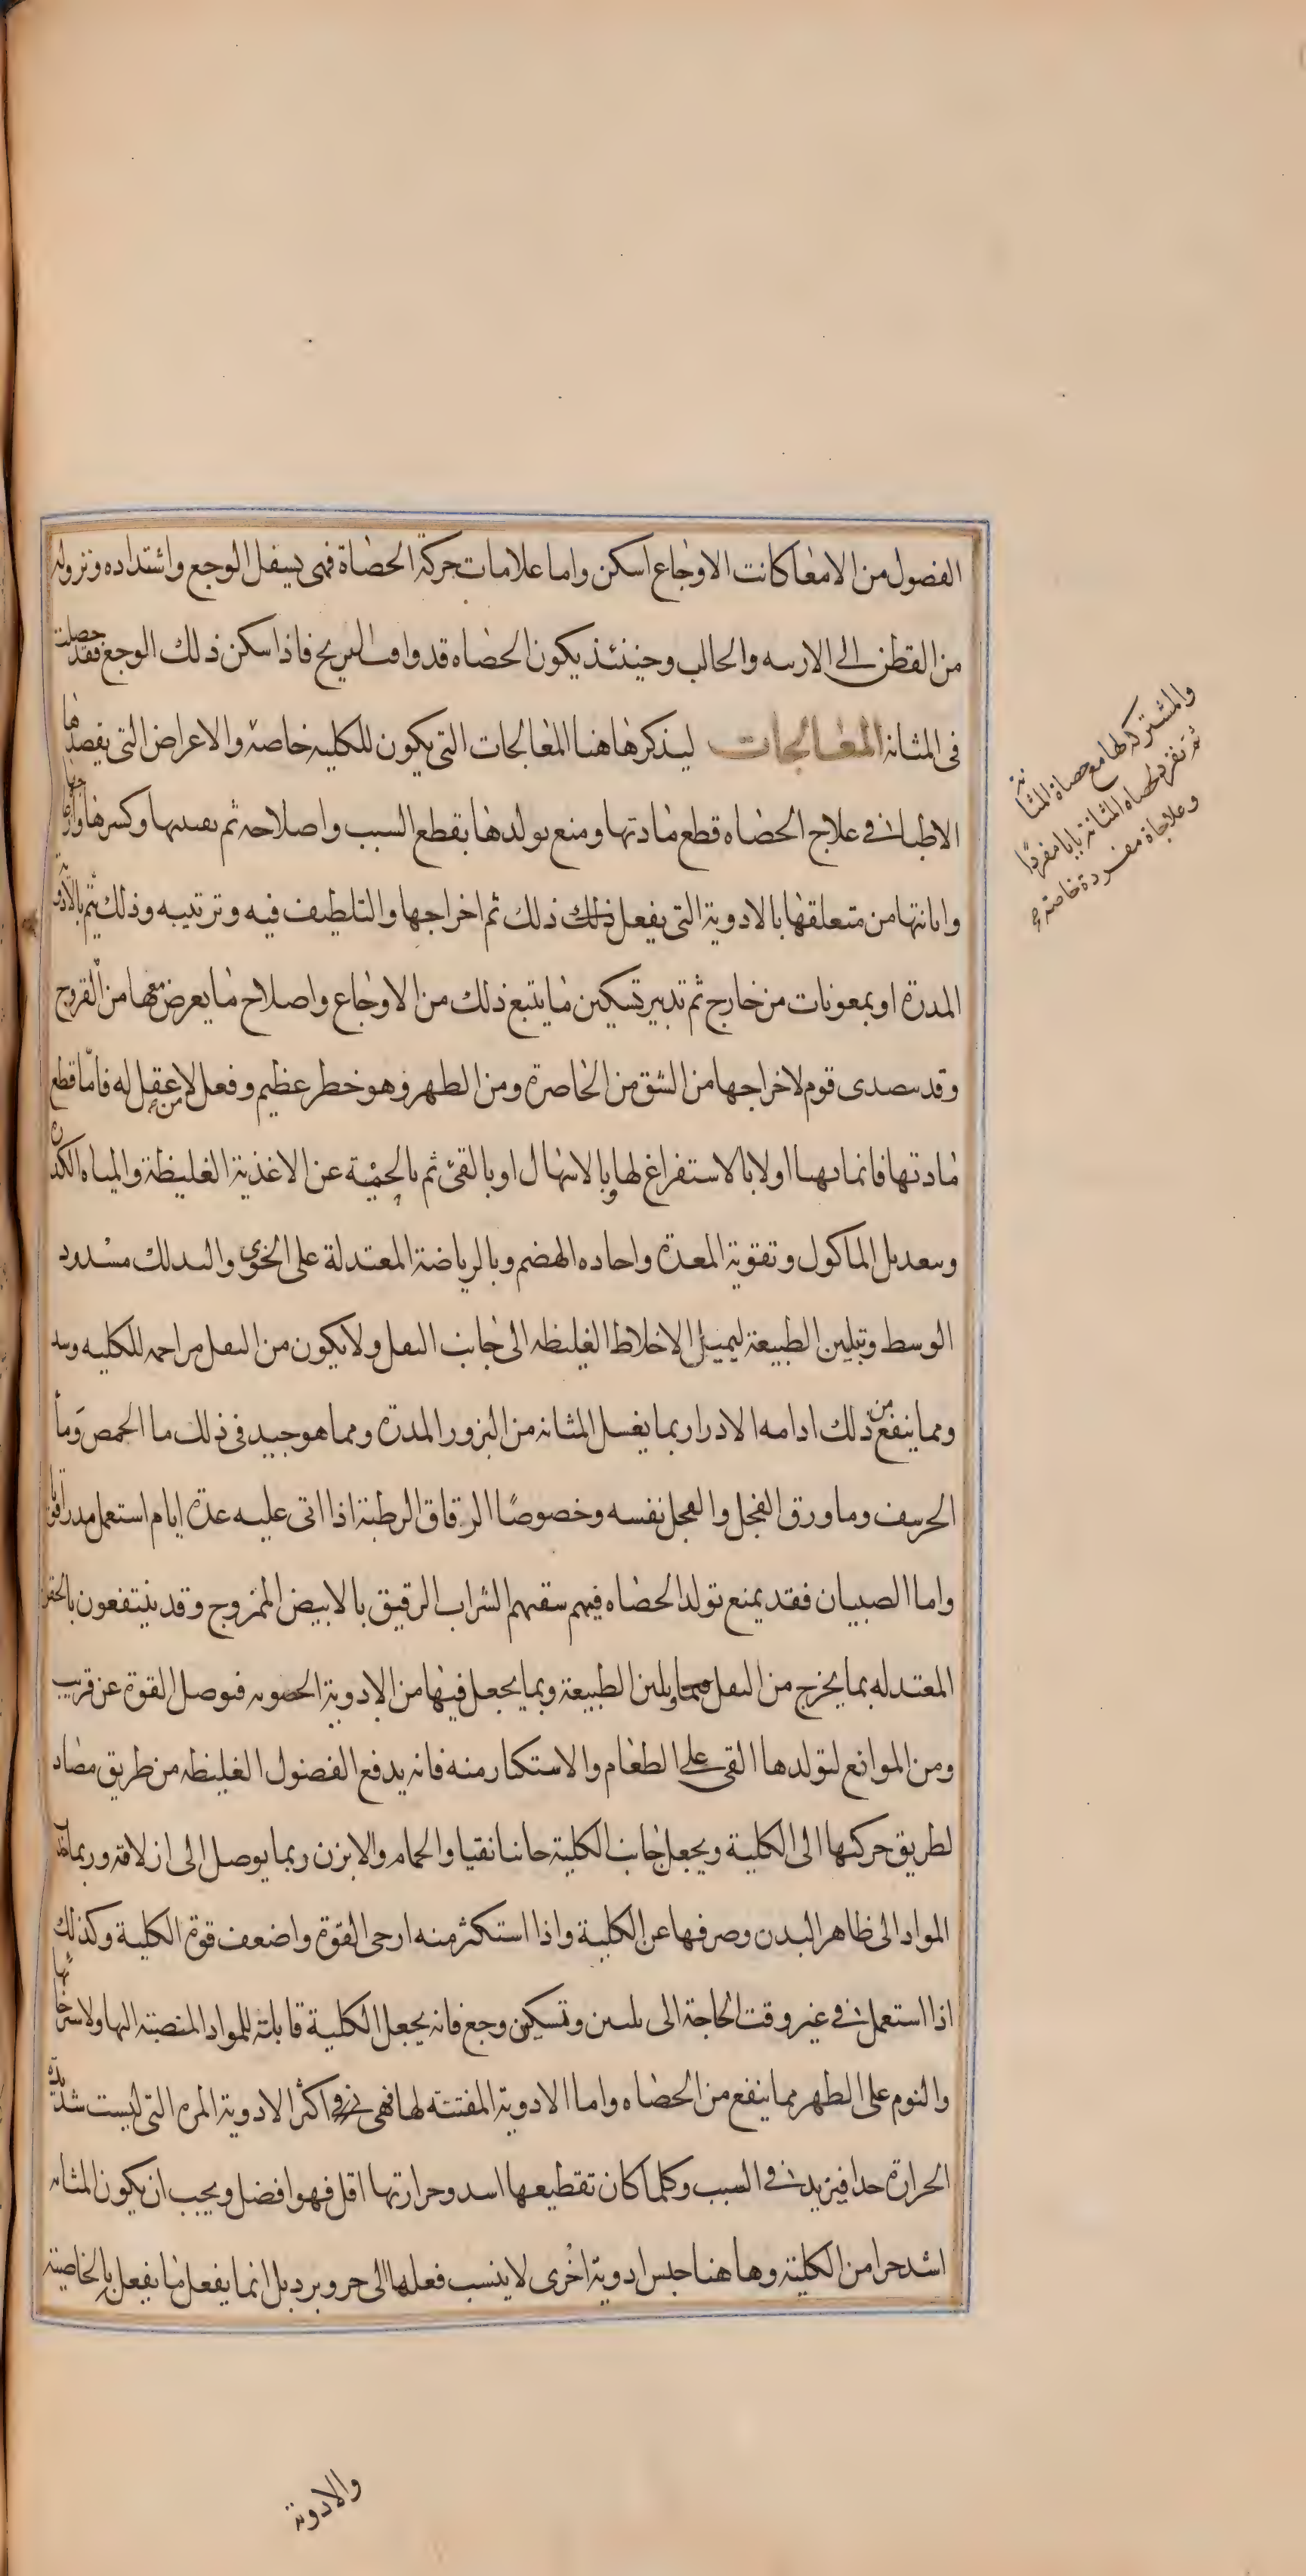 الفضول من الامعا كانت الاوجاع اسكن واما علامات حركة الحصاة فهى بسفل الوجع واشتداده ونزوله
من القطن الى الاربيه والحالب وحينئذ يكون الحصاه قد وافت البربخ فاذا سكن ذلك الوجع فقد حصلت
فى المثانة المعالجات ليذكر هاهنا المعالجات التى يكون للكلية خاصة والاعراض التى يقصدها
الاطباء فى علاج الحصاه قطع مادتها ومنع تولدها بقطع السبب واصلاحه ثم تفتيتها وكسرها وازعاجها
وابانتها من متعلقها بالادوية التى يفعل ذلك ذلك ثم اخراجها والتلطيف فيه وترتيبه وذلك يتم بالادوية
المدرة او بمعونات من خارج ثم تدبير تسكين ما يتبع ذلك من الاوجاع واصلاح ما يعرض معها من القروح
وقد يتصدى قوم لاخراجها من الشق من الخاصرة ومن الظهر وهو خطر عظيم وفعل من لا عقل له فاما قطع
مادتها فانما يتهيا اولا بالاستفراغ لها وبالاسهال او بالقئ ثم بالحمية عن الاغذية الغليظة والمياه الكدرة
وتعديل الماكول وتقوية المعدة واجاده الهضم وبالرياضة المعتدلة على الخوى والتدلك مشدود
الوسط وتبليين الطبيعة ليميل الاخلاط الغليظه الى جانب الثفل ولا يكون من الثفل مزاحمه للكليه وسد
ومما ينفع من ذلك ادامه الادرار بما يغسل المثانه من البزور المدرة ومما هو جيد فى ذلك ما الحمص وما
الحرشف وما ورق الفجل والفجل نفسه وخصوصًا الرقاق الرطبة اذا اتى عليه عدة ايام استعمل مدرا قويا
واما الصبيان فقد يمنع تولد الحصاه فيهم سقيهم الشراب الرقيق بالابيض الممزوج وقد ينتفعون بالحقن
المعتدله بما يخرج من الثفل ويلين الطبيعة وبما يجعل فيها من الادوية الحصوية فيوصل القوة عن قريب
ومن الموانع لتولدها القى على الطعام والاستكثار منه فانه يدفع الفضول الغليظه من طريق مضاد
لطريق حركتها الى الكلية ويجعل جانب الكلية جانبا نقيا والحمام والابزن ربما يوصل الى ازلاقه وربما جذبا
المواد الى ظاهر البدن وصرفها عن الكلية واذا استكثر منه ارخى القوة واضعف قوة الكلية وكذلك
اذا استعمل فى غير وقت الحاجة الى تليين وتسكين وجع فانه يجعل الكلية قابلة للمواد المنصبة اليها ولاسترخائها
والنوم على الظهر مما ينفع من الحصاه واما الادوية المفتته لها فهى فى اكثر الادوية المره التى ليست شديدة
الحرارة جدا فيزيد فى السبب وكلما كان تقطيعها اشد وحرارتها اقل فهو افضل ويجب ان يكون المثانه
اشد حرا من الكلية وهاهنا جنس ادوية اخرى لا ينسب فعلها الى حر وبرد بل انما يفعل ما يفعل بالخاصية
والمشتركه لها مع حصاة المثانة
ثم نفرد لحصاه المثانة بابا مفردًا
وعلاجاة مفردة خاصة
والادوية